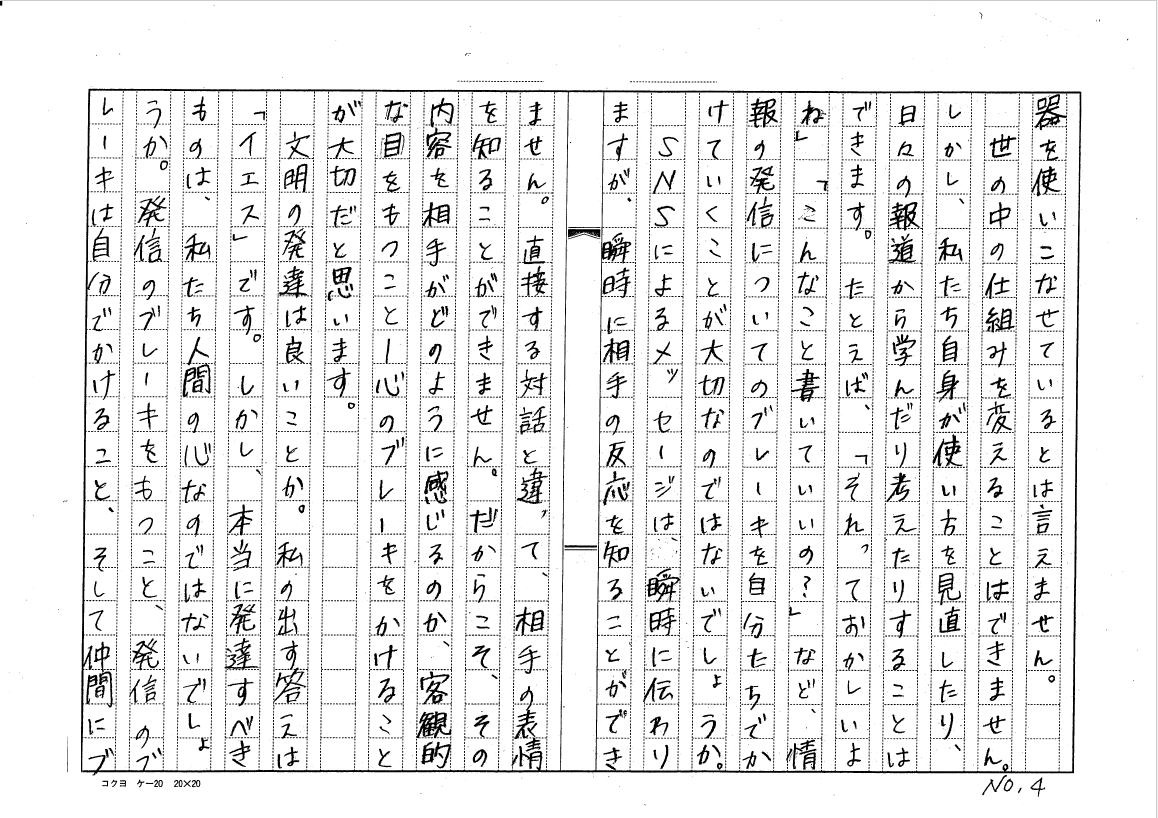 器を使いこなせているとは言えません。
世の中の仕組みを変えることはできません。
しかし、私たち自身が使い方を見直したり、
日々の報道から学んだり考えたりすることは
できます。たとえば、「それっておかしいよ
ね」「こんなこと書いていいの？」など、情
報の発信についてのブレーキを自分たちでか
けていくことが大切なのではないでしょうか。
SNSによるメッセージは、瞬時に伝わり
ますが、瞬時に相手の反応を知ることができ
ません。直接する対話と違って、相手の表情
を知ることができません。だからこそ、その
内容を相手がどのように感じるのか、客観的
な目をもつことー心のブレーキをかけること
が大切だと思います。
文明の発達は良いことか。私の出す答えは
「イエス」です。しかし、本当に発達すべき
ものは、私たち人間の心なのではないでしょ
うか。発信のブレーキをもつこと、発信のブ
レーキは自分でかけること、そして仲間にブ
コクヨ ケー20 20×20
NO.4